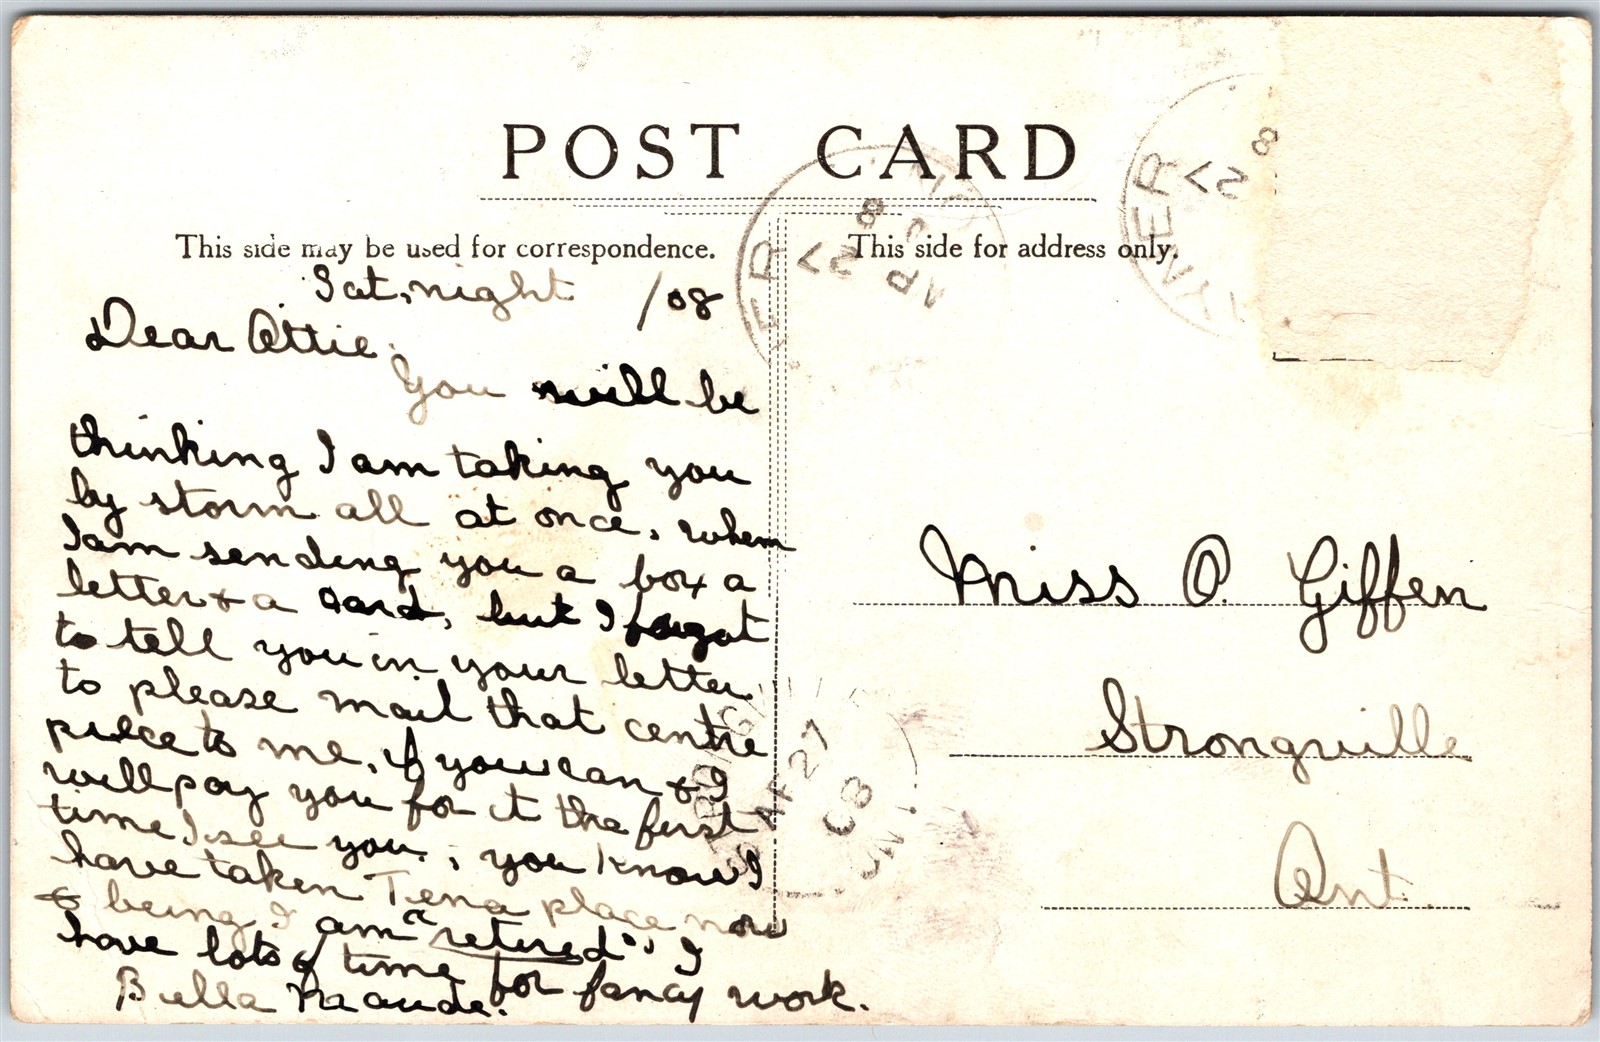 POST CARD
This side may be used for correspondence.
This side for address only.
Sat, night /08
Dear Ottie,
You will be
thinking I am taking you
by storm all at once, when
I am sending you a box a
letter & a card, but I forgot
to tell you in your letter
to please mail that centre
piece to me, if you can & I
will pay you for it the first
time I see you, you know I
have taken Tena place now
& being I am "retired", I
have lots of time for fancy work.
Bella Maude.
Miss O. Giffen
Strongville
Ont.
8
27
AP
ER
8
27
YNER
AP 27
08
ONT.